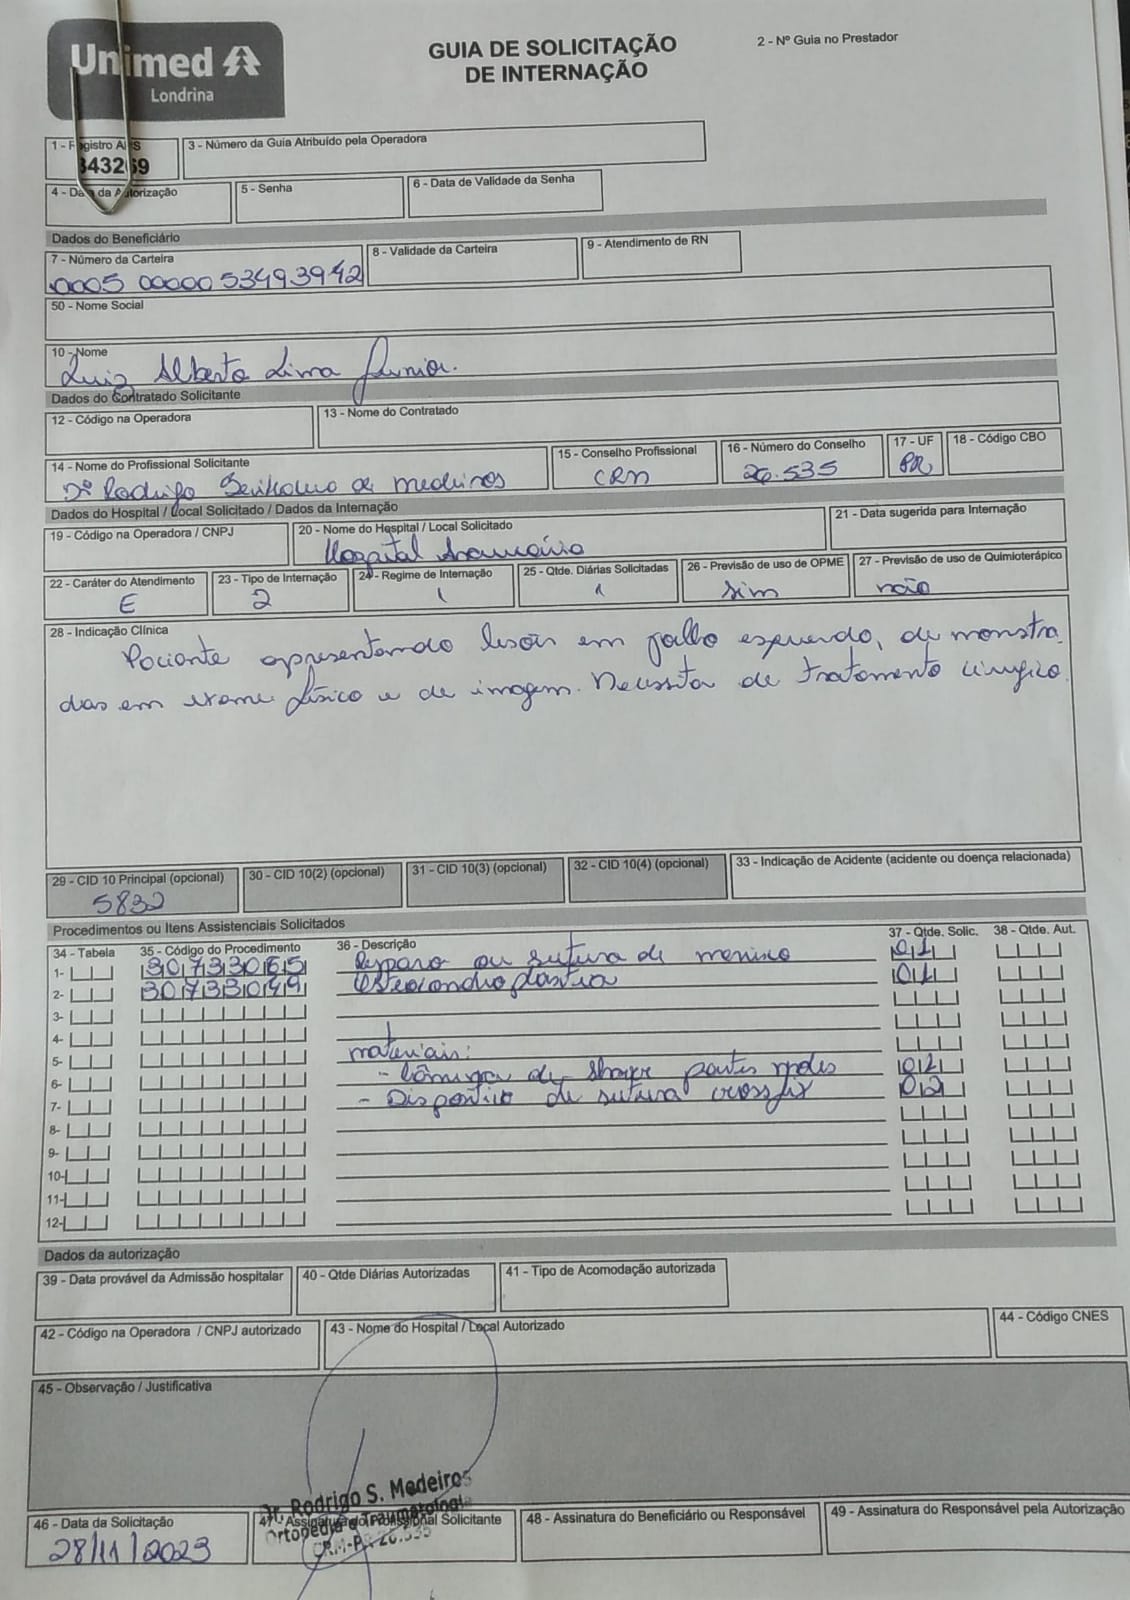 Unimed
Londrina
GUIA DE SOLICITAÇÃO
DE INTERNAÇÃO
2 - Nº Guia no Prestador
1 - Registro ANS
343269
3 - Número da Guia Atribuído pela Operadora
4 - Data da Autorização
5 - Senha
6 - Data de Validade da Senha
Dados do Beneficiário
7 - Número da Carteira
0005 00000 53493942
8 - Validade da Carteira
9 - Atendimento de RN
50 - Nome Social
10 - Nome
Luiz Alberto Lima Junior.
Dados do Contratado Solicitante
12 - Código na Operadora
13 - Nome do Contratado
14 - Nome do Profissional Solicitante
Dr Rodrigo de Medeiros
15 - Conselho Profissional
CRM
16 - Número do Conselho
26.535
17 - UF
PR
18 - Código CBO
Dados do Hospital / Local Solicitado / Dados da Internação
19 - Código na Operadora / CNPJ
20 - Nome do Hospital / Local Solicitado
Hospital
21 - Data sugerida para Internação
22 - Caráter do Atendimento
E
23 - Tipo de Internação
2
24 - Regime de Internação
1
25 - Qtde. Diárias Solicitadas
1
26 - Previsão de uso de OPME
sim
27 - Previsão de uso de Quimioterápico
não
28 - Indicação Clínica
Paciente apresentando lesões em joelho esquerdo, demonstra
das em exame físico e de imagem. Necessita de tratamento cirurgico.
29 - CID 10 Principal (opcional)
S832
30 - CID 10(2) (opcional)
31 - CID 10(3) (opcional)
32 - CID 10(4) (opcional)
33 - Indicação de Acidente (acidente ou doença relacionada)
Procedimentos ou Itens Assistenciais Solicitados
34 - Tabela
35 - Código do Procedimento
36 - Descrição
37 - Qtde. Solic.
38 - Qtde. Aut.
1- 30733065 Reparo ou sutura de menisco 01
2- 30733049 Osteocondroplastia 01
3-
4-
5- materiais:
6- - Lâmina de shaver partes moles 02
7- - Dispositivo de sutura crossfix 02
8-
9-
10-
11-
12-
Dados da autorização
39 - Data provável da Admissão hospitalar
40 - Qtde Diárias Autorizadas
41 - Tipo de Acomodação autorizada
42 - Código na Operadora / CNPJ autorizado
43 - Nome do Hospital / Local Autorizado
44 - Código CNES
45 - Observação / Justificativa
Dr. Rodrigo S. Medeiros
Ortopedia e Traumatologia
CRM-PR 26.535
46 - Data da Solicitação
28/11/2023
47 - Assinatura do Profissional Solicitante
48 - Assinatura do Beneficiário ou Responsável
49 - Assinatura do Responsável pela Autorização